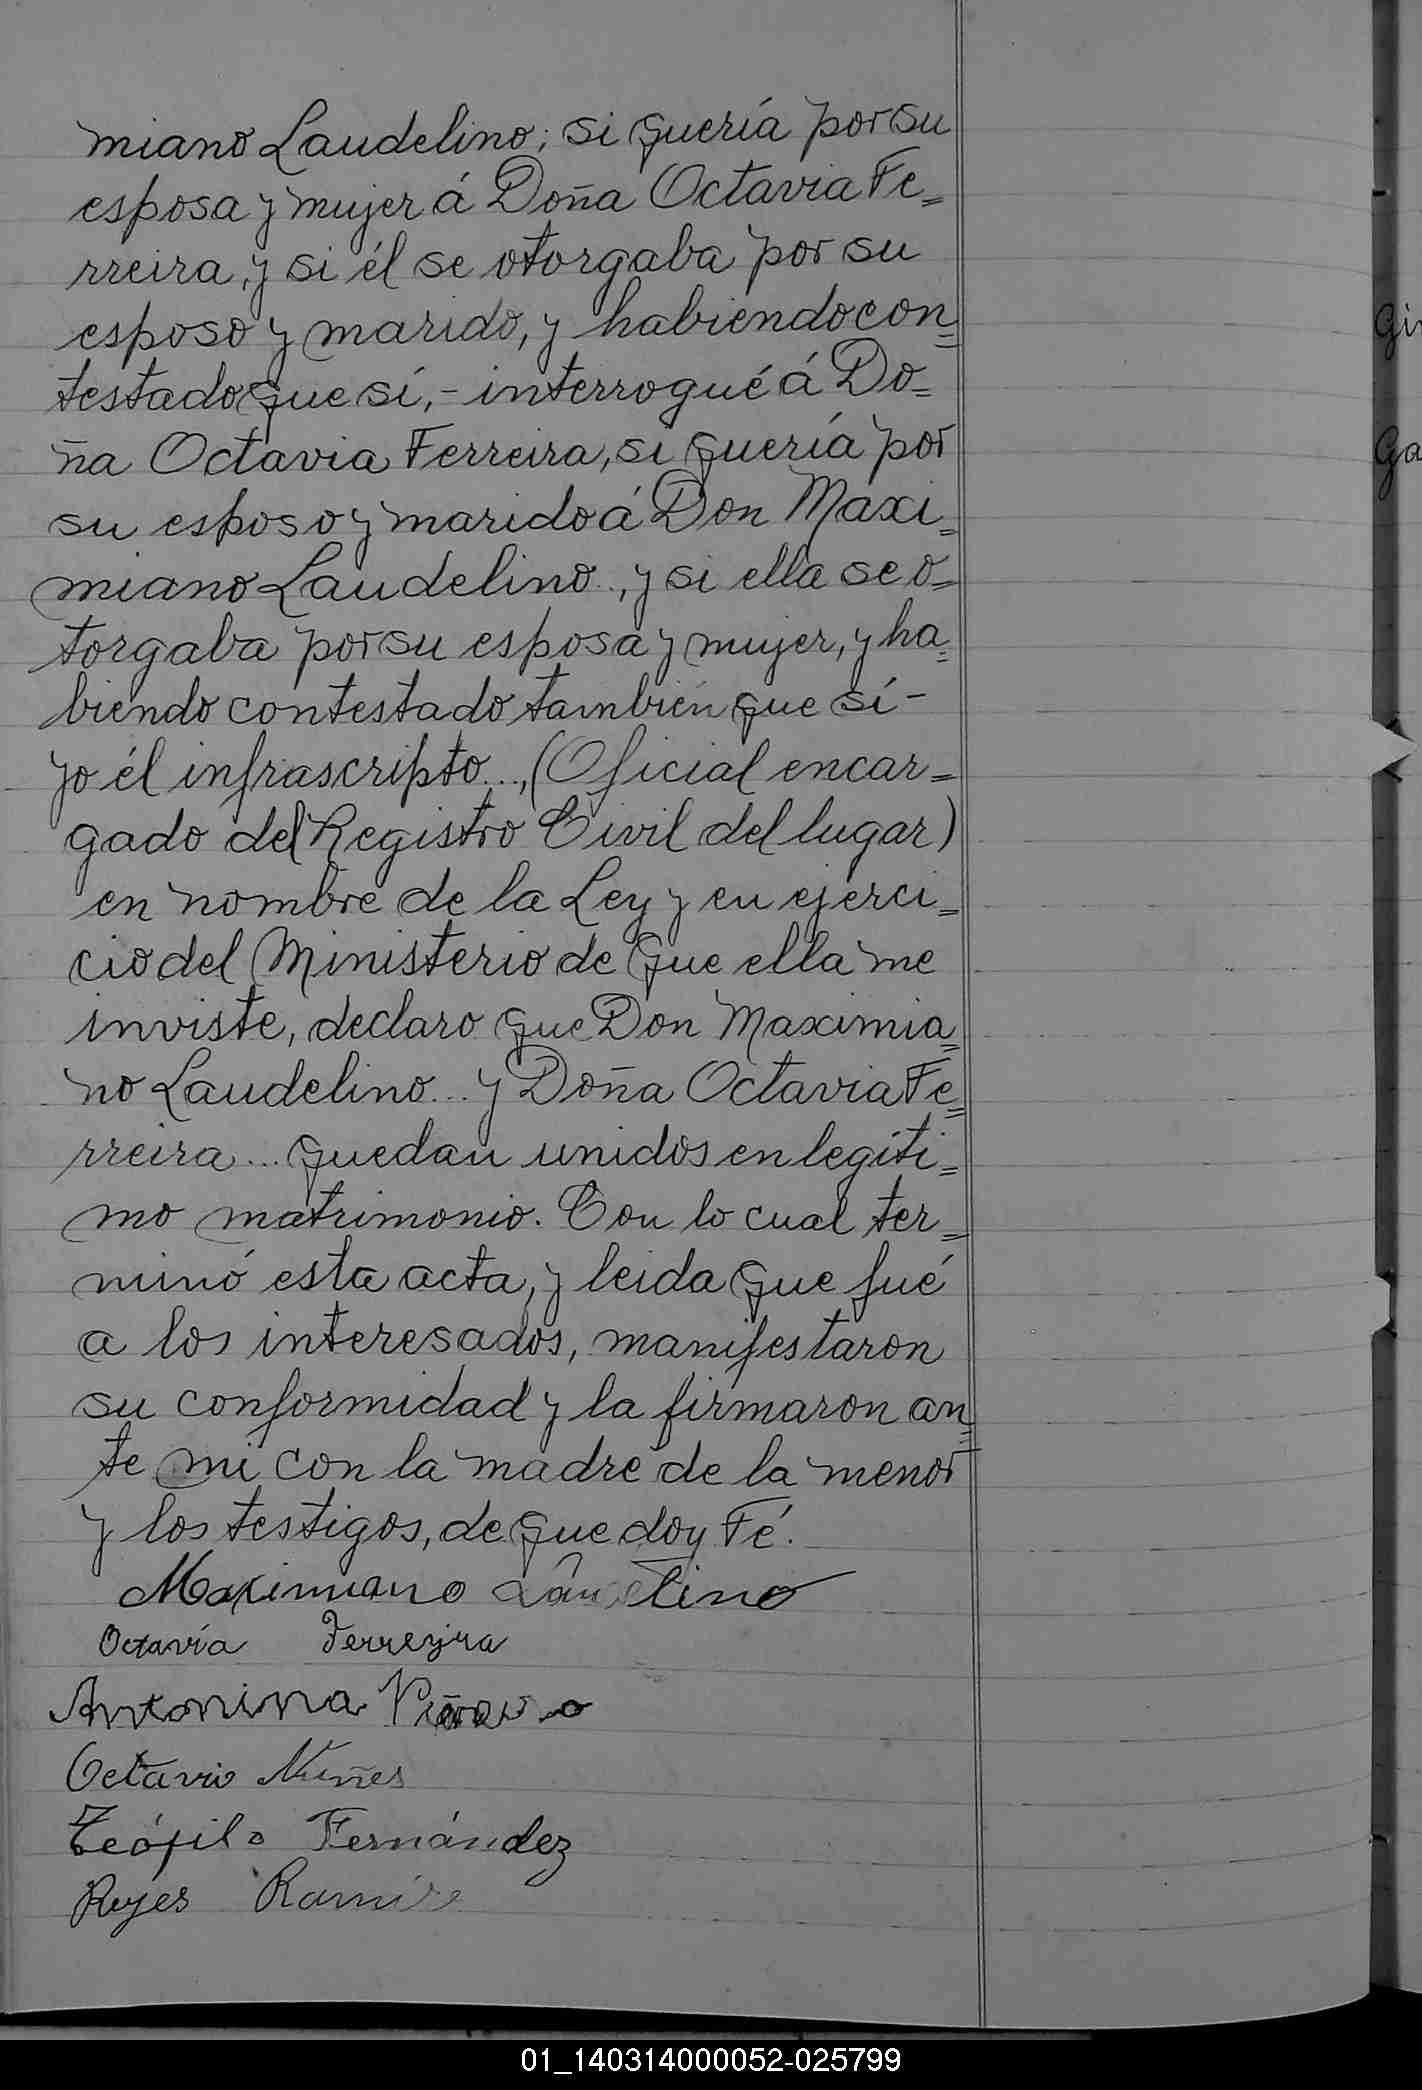 miano Laudelino; si quería por su
esposa y mujer á Doña Octavia Fe=
rreira, y si él se otorgaba por su
esposo y marido, y habiendo con=
testado que sí,- interrogué á Do=
ña Octavia Ferreira, si quería por
su esposo y marido á Don Maxi=
miano Laudelino.., y si ella se o=
torgaba por su esposa y mujer, y ha=
biendo contestado también que sí-
yo él infrascripto...,(Oficial encar=
gado del Registro Civil del lugar)
en nombre de la Ley y en ejerci=
cio del Ministerio de que ella me
inviste, declaro que Don Maximia=
no Laudelino... y Doña Octavia Fe=
rreira... quedan unidos en legíti=
mo matrimonio. Con lo cual ter=
minó esta acta, y leida que fué
a los interesados, manifestaron
su conformidad y la firmaron an=
te mi con la madre de la menor
y los testigos, de que doy Fé.
Maximiano Laudelino
Octavía Ferreyra
Antonina
Octavio Nuñes
Teófilo Fernández
Reyes
Gi
Ga
01_140314000052-025799